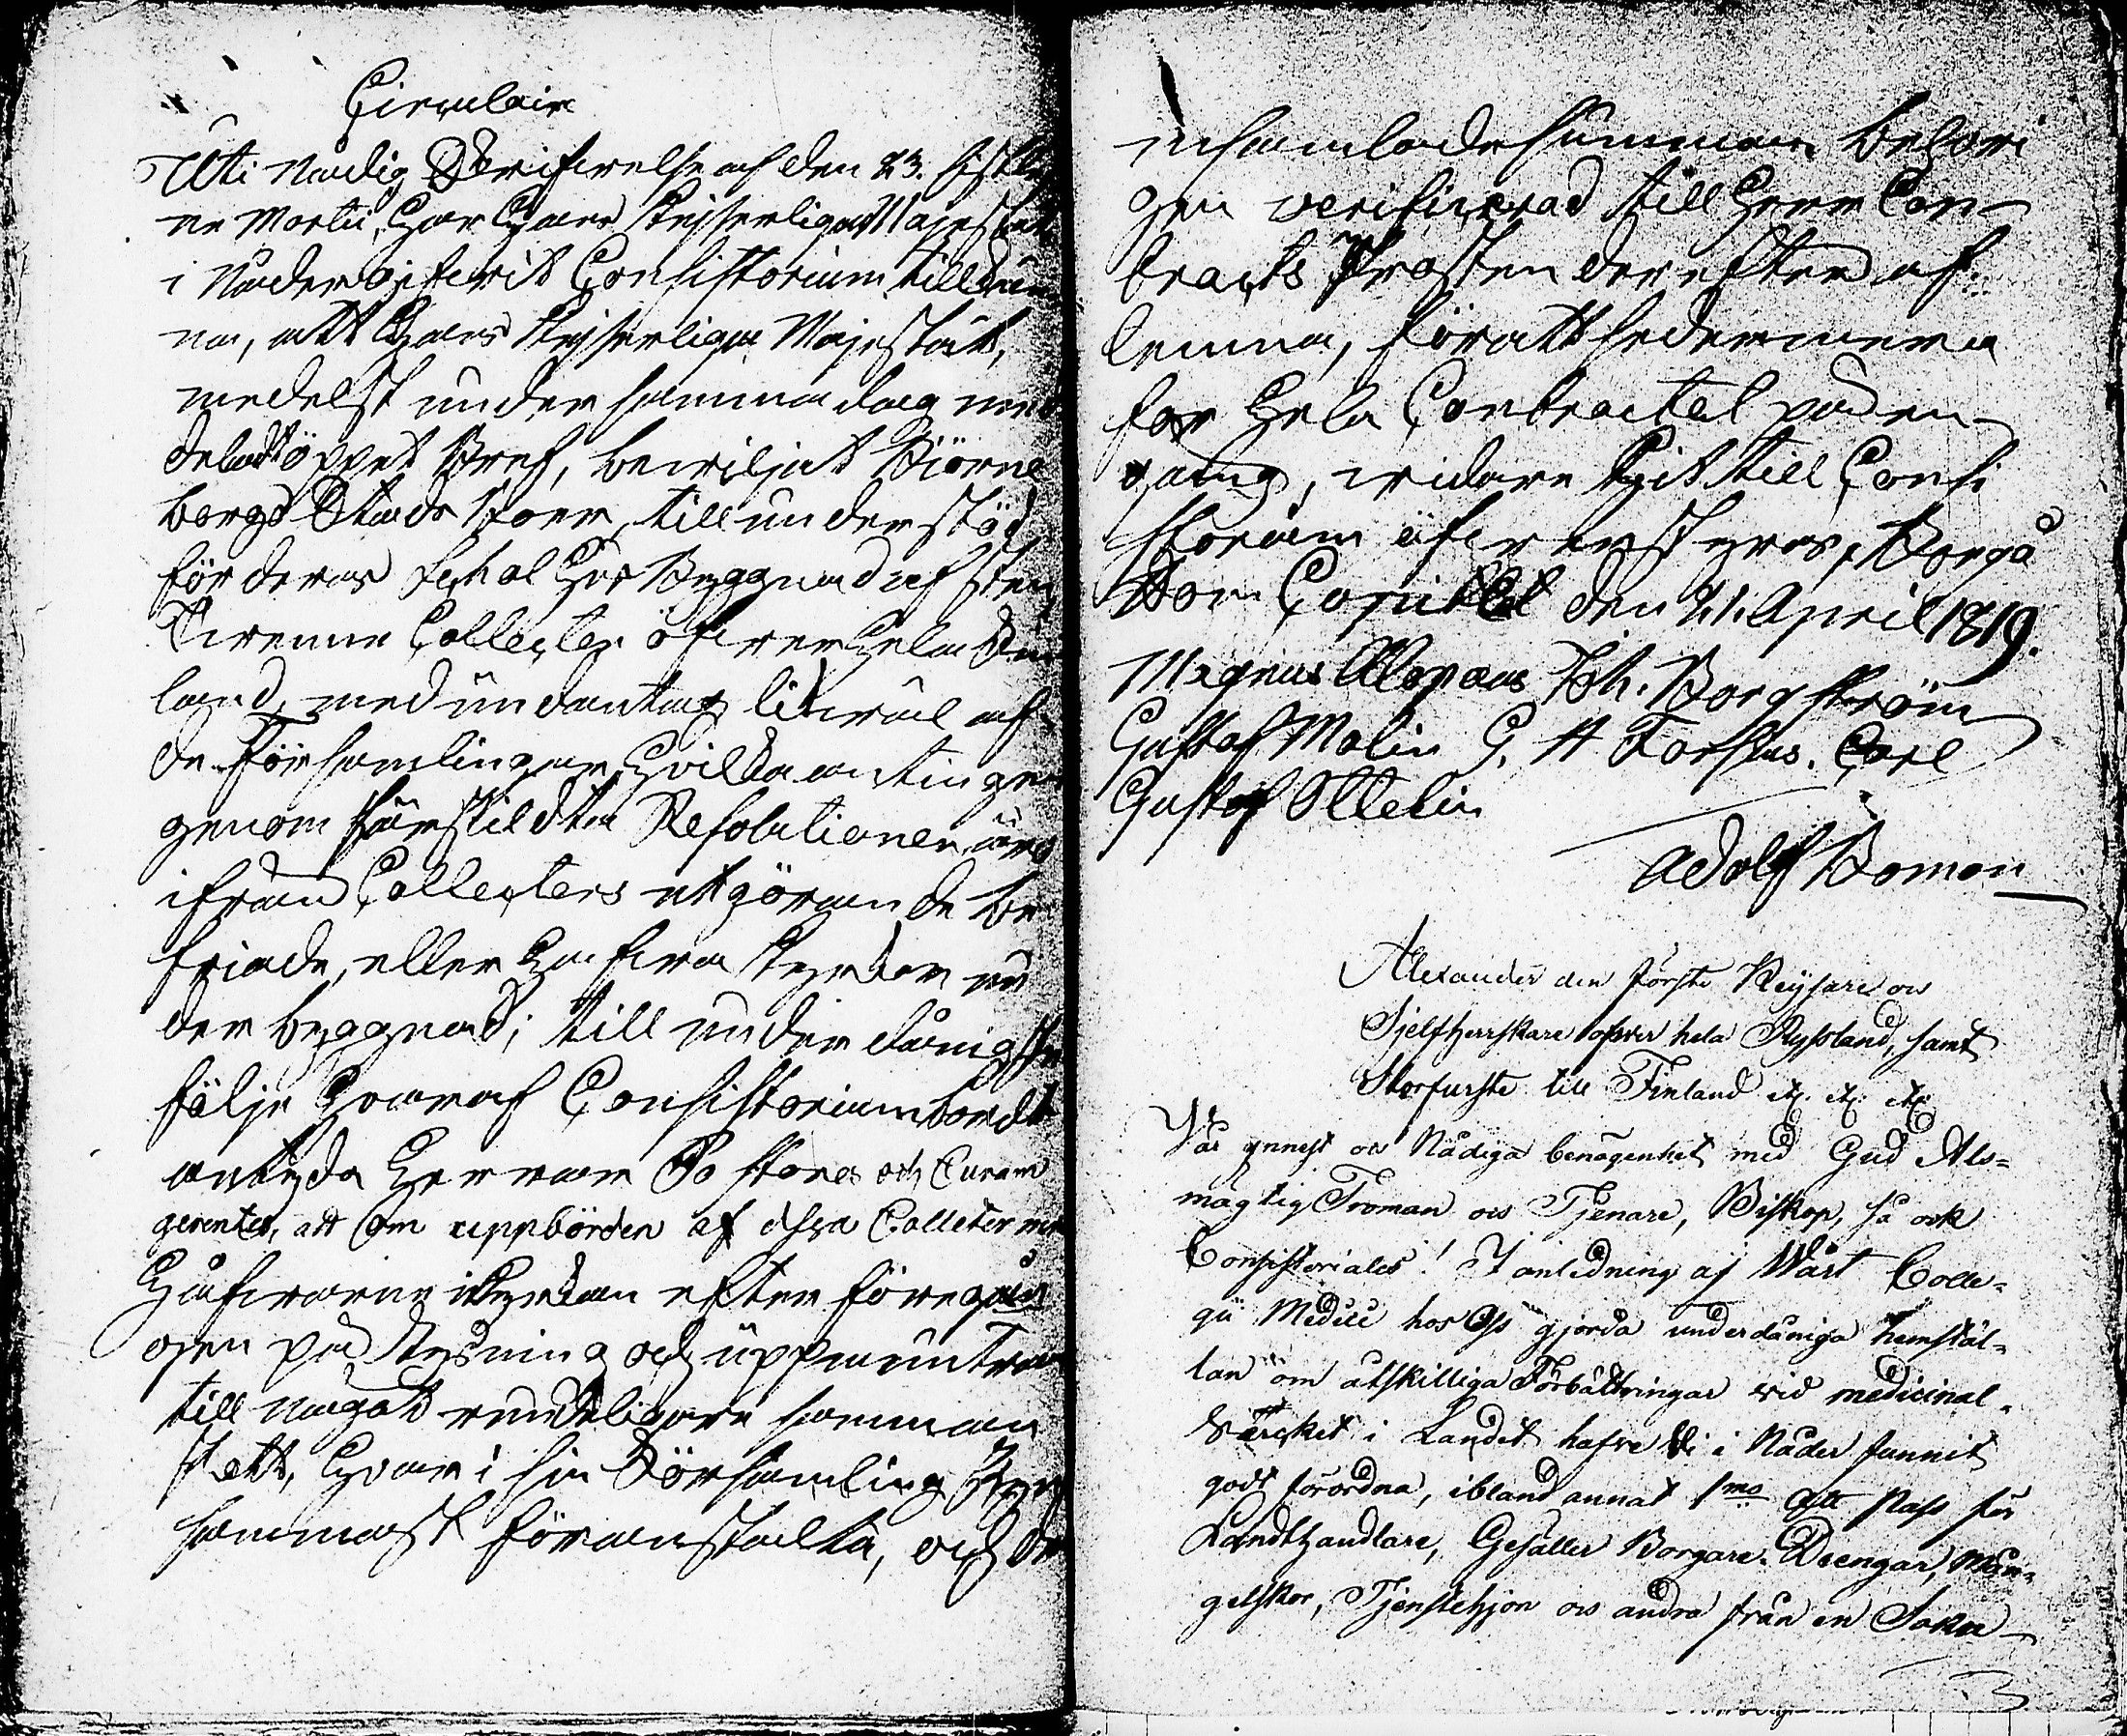 Circulair
Uti Nådig Skrifvelse af den 23. sistled
ne Martii, har Hans Kejserliga Majestät
i Nåder gifvit Consistorium tillkän
na, att Hans Kejserliga Majestät,
medelst under samma dag med
deladt öppet Bref, beviljat Björne
borgs Stads Boer, till understöd
för deras Schol Hus Byggnad af sten,
Tvenne Collecter öfver hela Fin
land, med undantag likväl af
de Församlingar, hvilka antingen
genom särskildta Resolutioner äro
ifrån Collecters utgörande be
friade, eller hafva Kyrkor un
der byggnad; till underdånigste
följe hvaraf Consistorium bordt
antyda Herrar Pastores och Curam
gerentes, att om uppbörden af dessa Collecter med
Håfvarne i Kyrkan efter föregån
gen på lysning och uppmuntran
till något ansenligare samman
skott, hvar i sin Församling sky
sammast föranstalta, och de
insamlade summan behöri
gen verificerad till Herr Con-
tracts Prosten derefter af-
lemna, för att sedermera
för hela Contractet på en
gång, vidare hit till Consi
storium öfversändas, Borgå
Dom Capitel den 21. April 1819.
Magnus Alopæus Joh. Borgström
Gustaf Molin G. A Forsius. Carl
Gustaf Ottelin
Adolf Boman
Alexander den förste Keysare oc
Sjelfherrskare öfver hela Ryssland, samt
Storfurste till Finland etc. etc. etc.
Vår ynnest oc Nådiga benägenhet med Gud Als=
mägtig Troman oc Tjenare, Biskop, så ock
Consistoriales! I anledning af Wårt Colle=
gii Medici hos Oss gjorda underdåniga hemstäl=
lan om åtskilliga Förbättringar vid medicinal=
Värcket i Landet hafve Vi i Nåder funnit
godt förordna, ibland annat 1mo Att Pass för
Landthandlare, Gesäller Borgare. Drengar, Mån=
gelskor, Tjenstehjon oc andra från en Soken